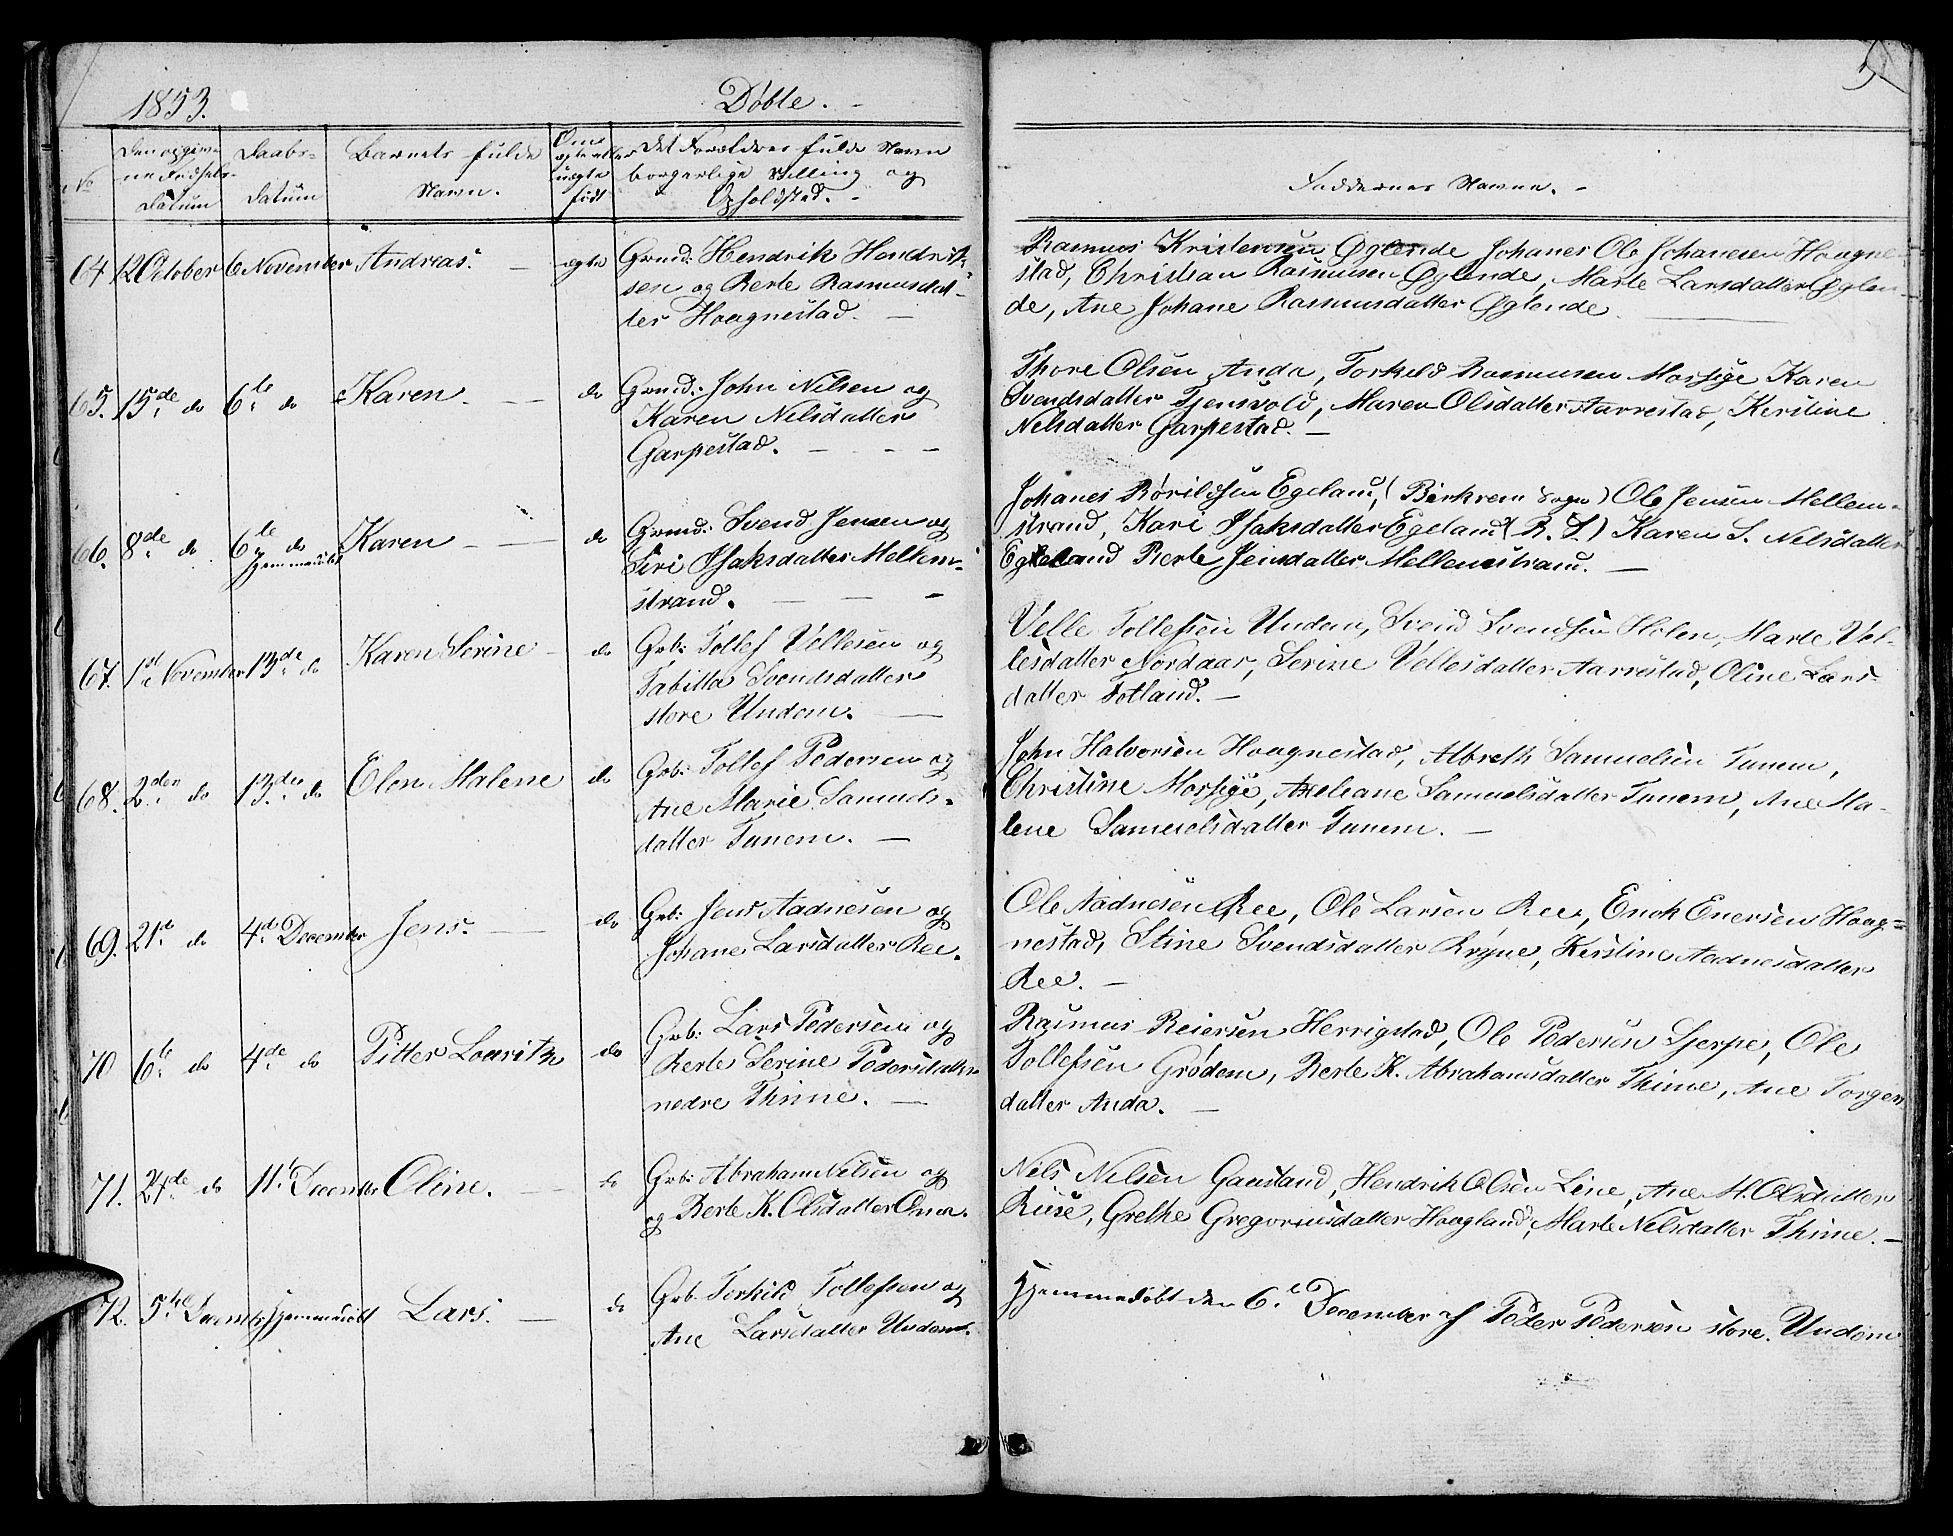 1853.
Døbte. -
No
Den opgivne Fødsels-Datum
Daabs-Datum
Barnets fulde Navn.
Om ægte eller uægte født
Det Forældres fulde Navn borgerlige Stilling og Opholdsted. -
Faddernes Navne. -
64 12 October 6 November Andreas. - ægte Grmd: Hendrik Hendrik-
sen og Berte Rasmusdat-
ter Haagnestad. -
Rasmus Kristensen Øglende Johanes Ole Johanesen Haagne-
stad, Christian Rasmusen Øglende, Marte Larsdatter Øglen-
de, Ane Johane Rasmusdatter Øglende
65. 15de do 6te do Karen. - do Grmd: John Nilsen og
Karen Nelsdatter
Garpestad. - - -
Thore Olsen Anda, Torkeld Rasmusen Morsige Karen
Svendsdatter Tjensvold, Maren Olsdatter Aarrestad, Kerstine
Nelsdatter Garpestad. -
66. 8de do 6te do Hjemmedøbt Karen - - do Grmd: Svend Jensen og
Siri Isaksdatter Mellem-
strand. - - -
Johanes Egeland, (Birkrem Sogn) Ole Jensen Mellem-
strand, Kari Isaksdatter Egeland (B. S.) Karen S. Nelsdatter
Egeland Berte Jensdatter Mellemstrand. -
67. 1st November 13de do Karen Serine - do Grb: Tollef Vellesen og
Tabitta Svendsdatter
store Undem. -
Velle Tollefsen Undem, Svend Svendsen Holen, Marte Vel-
lesdatter Nordaas, Serine Vellesdatter Aarrestad, Oline Lars-
datter Fotland. -
68. 2den do 13de do Elen Malene do Grb: Tollef Pedersen og
Ane Marie Samuels-
datter Tunem. -
John Halvorsen Haagnestad, Albreth Samuelsen Tunem,
Christine Morsige, Axeliane Samuelsdatter Tunem, Ane Ma-
lene Samuelsdatter Tunem. -
69. 21de do 4de December Jens. - do Grb: Jens Aadnesen og
Johane Larsdatter Ree.
Ole Aadnesen Ree, Ole Larsen Ree, Enok Enersen Haag-
nestad, Stine Svendsdatter Bryne, Kirstine Aadnesdatter
Ree. -
70 6te do 4de do Pitter Lauritz do Grb: Lars Pedersen og
Berte Serine Pedersdatter
nedre Thime. -
Rasmus Reiersen Herrigstad, Ole Pedersen Serpe, Ole
Tollefsen Grødem, Berte K. Abrahamsdatter Thime, Ane Torgers
datter Anda. -
71. 27de do 11te December Oline. - do Grb: Abraham Nilsen og
og Berte K. Olsdatter Oma.
Nels Nilsen Gausland, Hendrik Olsen Line, Ane M. Olsdatter
Riise, Grethe Gregoriusdatter Haagland, Marte Nelsdatter Thime. -
72. 5te December Hjemmedøbt Lars. - do Grb: Torkild Tollefsen og
Ane Larsdatter Undem.
Hjemmedøbt den 6te December af Peder Pedersen store Undem